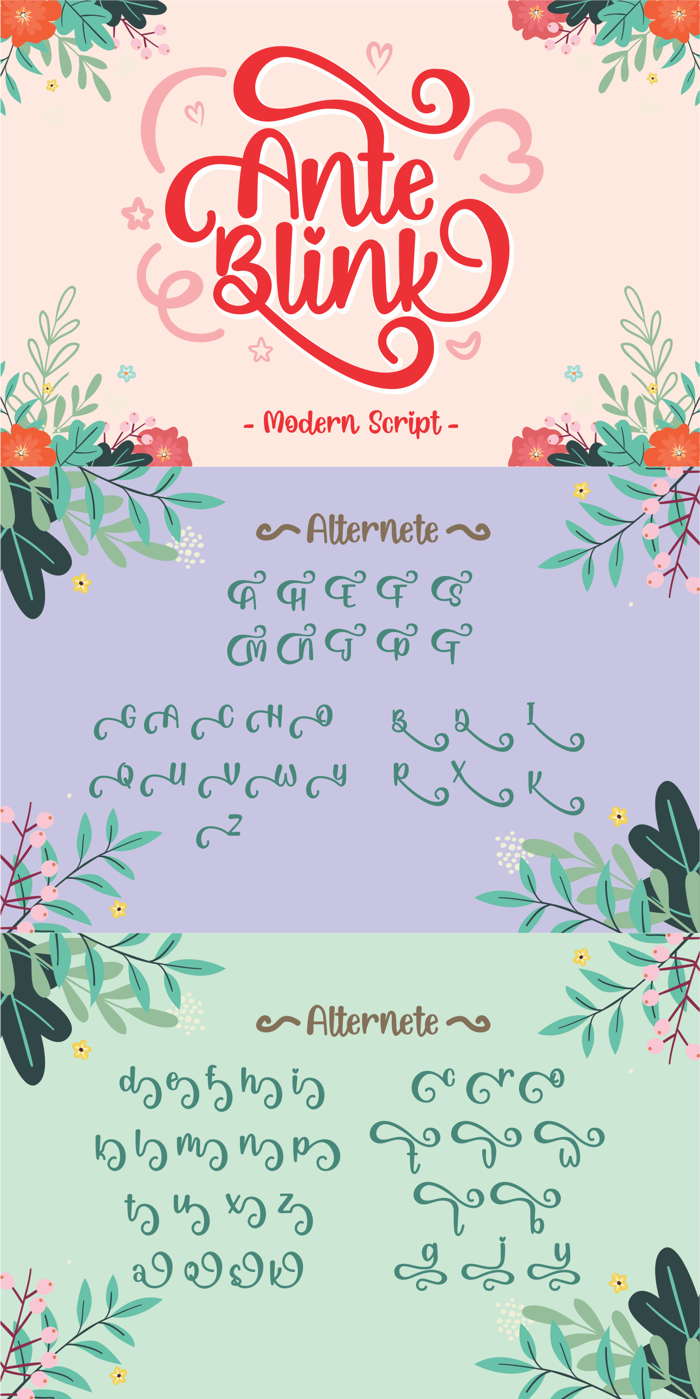 Ante
Blink
- Modern Script -
Alternete
A H E F S
M n J P T
G A C H O
B D I
Q U V W Y
R X K
Z
Alternete
d e f h i
c r o
k l m n p
t v w
t u x z
l b
a Q s k
g j y